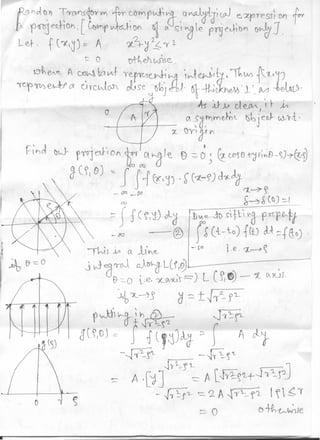 Randon Transform for computing analytical expression for
a projection. [Computation of a single projection only].
Let. f(x,y) = A    x²+y² ≤ r²
= 0    otherwise.
where A constant representing intensity. Thus f(x,y)
represents a circular disc object of thickness '1' as below.
y
0
A
r
x
As it is clear, it is
a symmetric object w.r.t.
origin
Find out projection for angle θ = 0; (x cosθ + y sinθ - ρ) → (x-ρ)
g(ρ,θ) = ∫∫ f(x,y). δ(x-ρ) dx dy
-∞ -∞
x → ρ
δ → δ(0) = 1
= ∫ f(ρ,y) dy
-∞
②
Due to sifting property
∫ δ(t-t₀) f(t) dt = f(t₀)
-∞
i.e. x → ρ
This is a line
integral along L(ρ,θ)
if θ = 0
θ = 0 i.e. x axis ⇒ L(ρ,0) — x axis.
if x → ρ    y = ± √r²-ρ²
putting in ②
g(ρ,0) = ∫ f(ρ,y) dy = ∫ A dy
+√r²-ρ²
√r²-ρ²
-√r²-ρ²
-√r²-ρ²
g(ρ)
= A.[y]
√r²-ρ²
-√r²-ρ²
= A [√r²-ρ² + √r²-ρ²]
= 2A √r²-ρ²    |ρ| ≤ r
= 0    otherwise
0    r    ρ